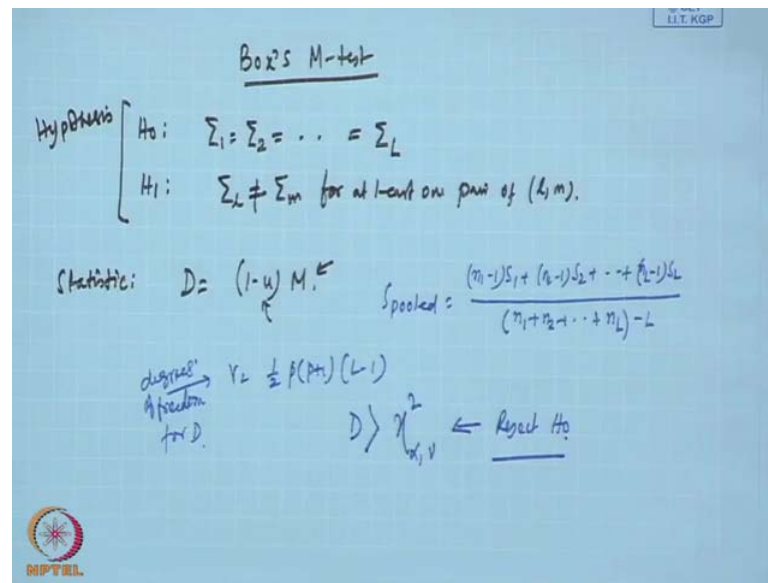 I.I.T. KGP
Box's M-test
Hypothesis
H0: Σ1 = Σ2 = · · = ΣL
H1: Σl ≠ Σm for at least one pair of (l, m).
Statistic: D = (1-u) M.
Spooled = (n1-1)S1 + (n2-1)S2 + ·· + (nL-1)SL
(n1+n2+ ·· + nL) - L
degrees of freedom for D. → ν = 1/2 p(p+1) (L-1)
D > χ²α, ν ⇐ Reject H0
NPTEL